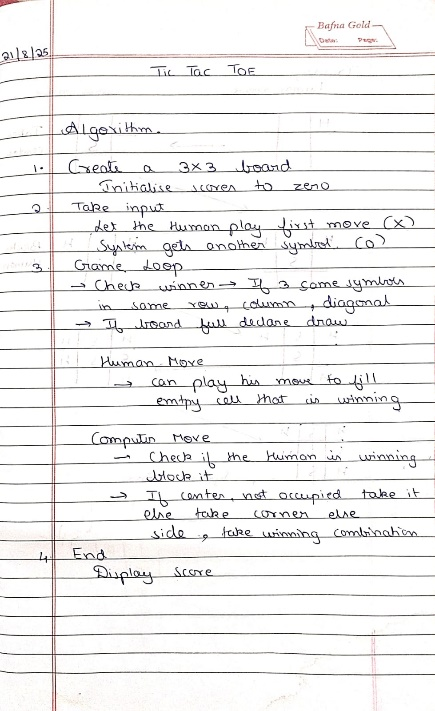 Bafna Gold
Date: Page:
21/8/25
Tic Tac TOE
Algorithm.
1. Create a 3x3 board
Initialise scores to zero
2. Take input
Let the Human play first move (X)
System gets another symbol. (O)
3. Game Loop
→ Check winner → If 3 same symbols
in same row, column, diagonal
→ If board full declare draw
Human Move
→ can play his move to fill
emtpy cell that is winning
Computer Move
→ Check if the Human is winning
block it
→ If center, not occupied take it
else take corner else
side, take winning combination
4. End
Display score